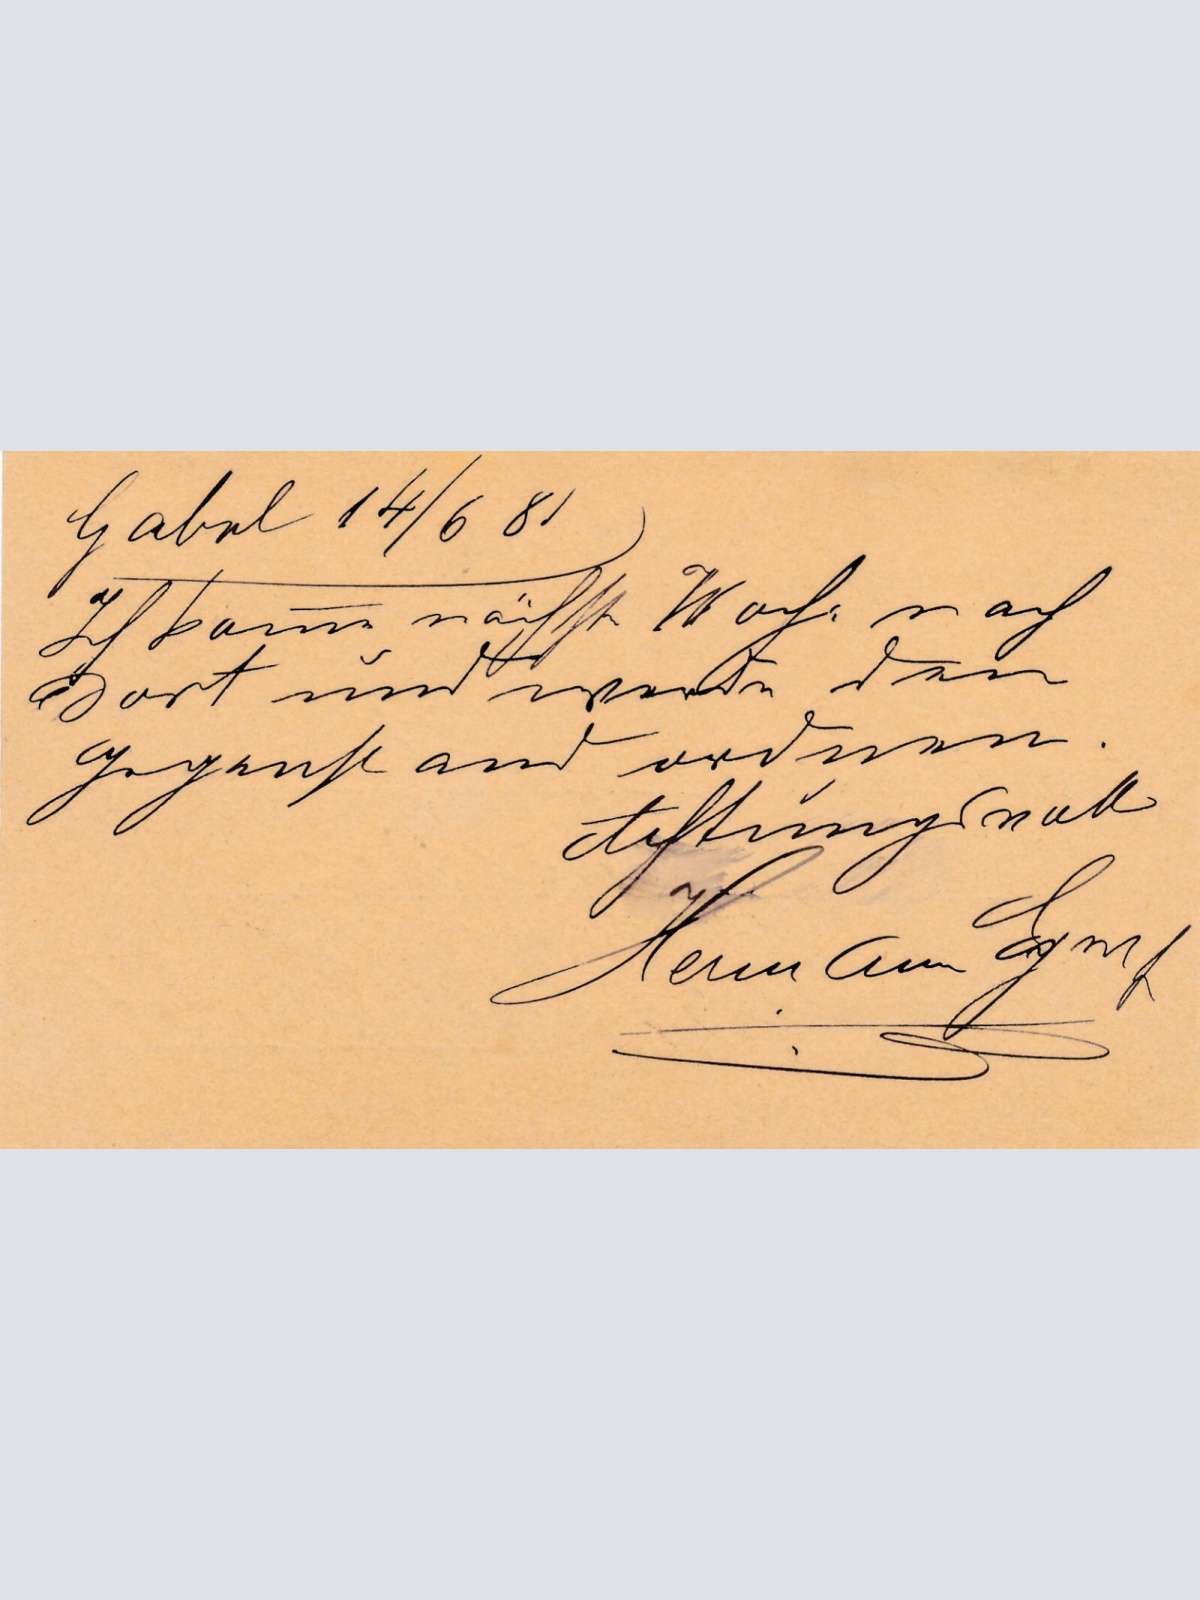 Gabel 14/6 81
Ich kom̅e nächste Woche nach
Dort und werde den
Gegenstand ordnen.
Achtungsvoll
Hermann